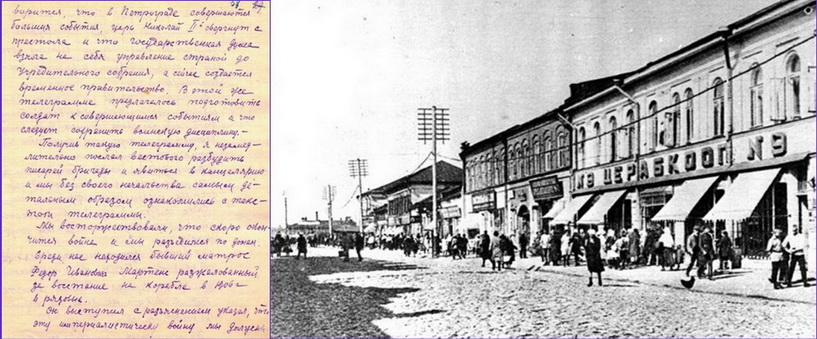 ворится, что в Петрограде совершаются
большия события, царь Николай II й свергнут с
престола и что государственная дума
взяла на себя управление страной до
Учредительного собрания, а сейчас создается
временное правительство. В этой же
телеграмме предлагалось подготовить
солдат к совершающимся событиям и что
следует сохранить воинскую дисциплину.-
Получив такую телеграмму, я незамед-
лительно послал вестового разбудить
писарей бригады и явиться в канцелярию
и мы без своего начальства самым де-
тальным образом ознакомились с текс-
том телеграммы.
Мы восторжествовали, что скоро окон-
чится война и мы разъедемся по домам.
Среди нас находился бывший матрос
Федор Иванович Мартенс разжалованный
за восстание на корабле в
в рядовые.
Он выступил с разъяснением указал, что
эту империалистическую войну мы
№9 ЦЕРАБКООП №9